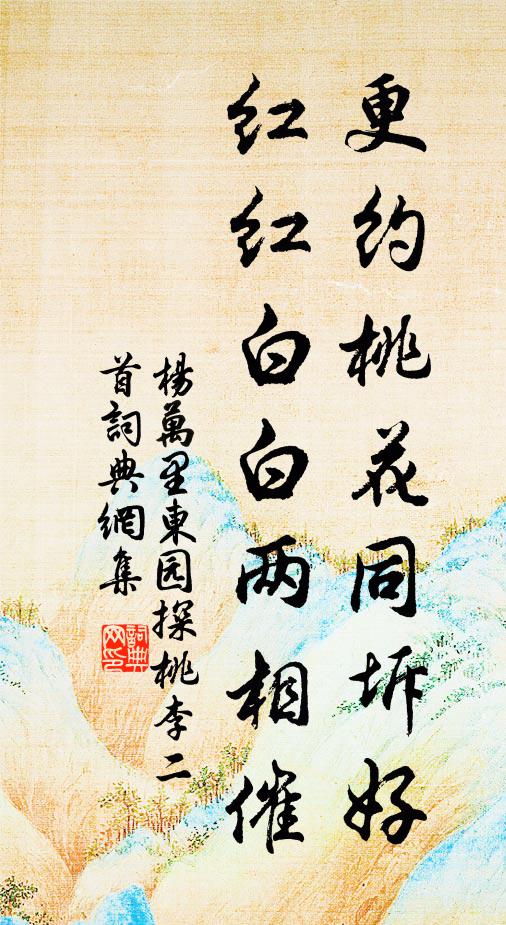 更约桃花同坼好
红红白白两相催
楊萬里東园探桃李二
首詞典網集
詞典
网印